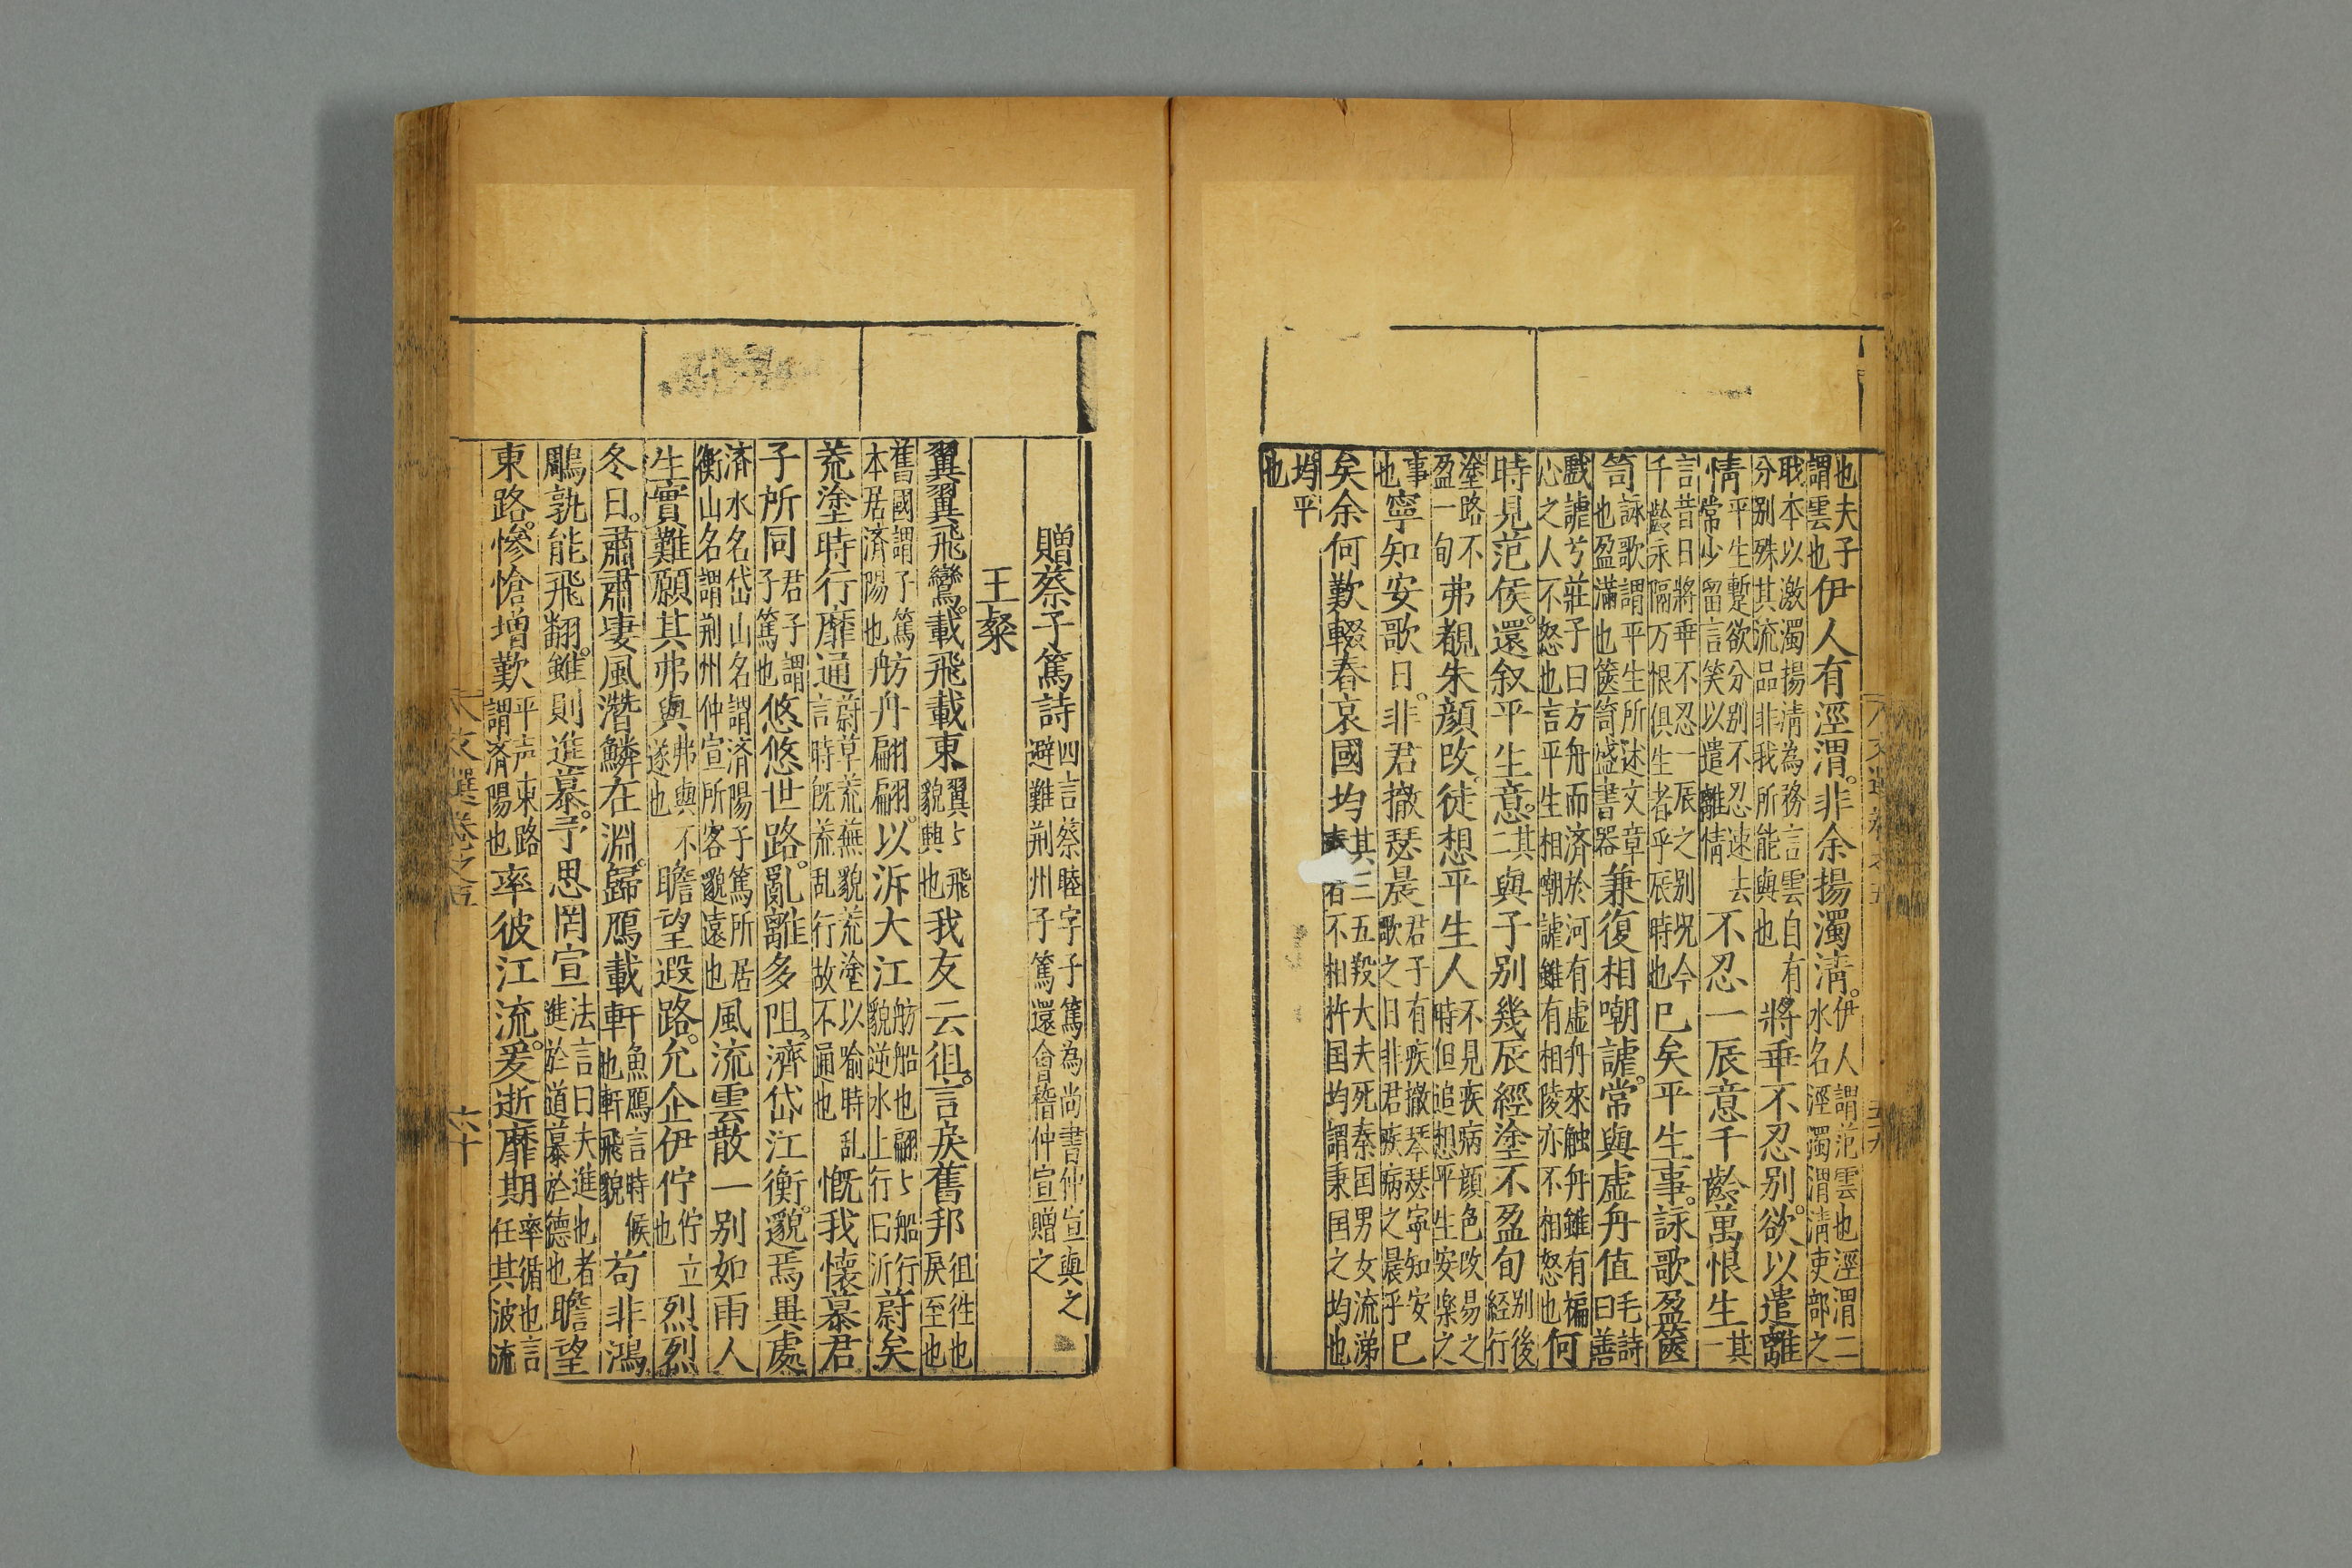 也夫子謂雲也伊人有涇渭。非余揚濁清。伊人謂范雲也涇渭二水名涇濁渭清吏部之
戢本以激濁揚清為務言雲自有分别殊其流品非我所能與也將乖不忍别。欲以遣離
情平生蹔欲分别不忍速去常少留言笑以遣離情不忍一辰意千齡萬恨生其一
言昔日將乖不忍一辰之别况今千齡永隔万恨俱生者乎辰時也已矣平生事。詠歌盈篋
笥詠歌謂平生所述文章也盈滿也篋笥盛書器兼復相嘲謔。常與虛舟值毛詩曰善
戲謔兮莊子曰方舟而济於河有虛舟來触舟雖有褊心之人不怒也言平生相嘲謔雖有相陵亦不相怒也何
時見范侯。還叙平生意。其二與子别幾辰經塗不盈旬别後経行
塗路不盈一旬弗覩朱顔改。徒想平生人不見疾病顔色改易之時但追想平生安楽之
事也寧知安歌日。非君撤瑟晨君子有疾撤琴瑟寧知安歌之日非君疾病之晨乎已
矣余何歎輟春哀國均其三五羖大夫死秦国男女流涕者不相杵国均謂秉国之均均也
均平也
贈蔡子篤詩四言蔡睦字子篤為尚書仲宣與之避難荆州子篤還會稽仲宣贈之
王粲
翼翼飛鸞。載飛載東翼〻飛貌興也我友云徂。言戾舊邦徂徃也戾至也
舊國謂子篤本居济陽也舫舟翩翩。以泝大江舫船也翩〻船行貌逆水上行曰泝蔚矣
荒塗時行靡通蔚草荒蕪貌荒塗以喻時乱言時既荒乱行故不通也慨我懷慕君
子所同君子謂子篤也悠悠世路。亂離多阻。濟岱江衡。邈焉異處
济水名岱山名謂济陽子篤所居衡山名謂荆州仲宣所客邈遠也風流雲散一别如雨人
生實難願其弗與弗與不遂也瞻望遐路。允企伊佇佇立也烈烈
冬日。肅肅凄風潛鱗在淵。歸鴈載軒魚鴈言時候也軒飛貌苟非鴻
鵰孰能飛翻。雖則進慕。予思罔宣法言曰夫進也者進於道慕於德也瞻望
東路。慘愴增歎平声東路謂济陽也率彼江流。爰逝靡期率循也言任其波流
六十